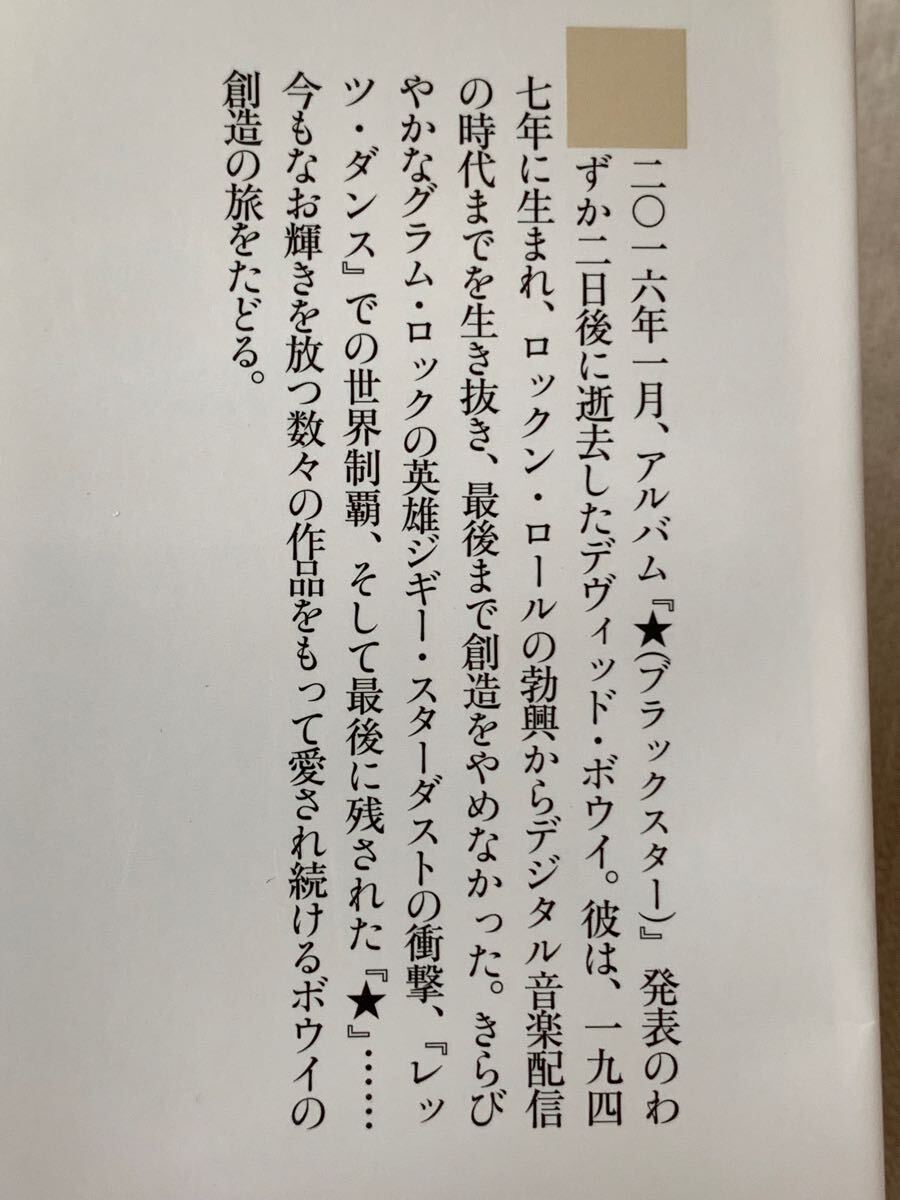 二〇一六年一月、アルバム『★(ブラックスター)』発表のわ
ずか二日後に逝去したデヴィッド・ボウイ。彼は、一九四
七年に生まれ、ロックン・ロールの勃興からデジタル音楽配信
の時代までを生き抜き、最後まで創造をやめなかった。きらび
やかなグラム・ロックの英雄ジギー・スターダストの衝撃、『レッ
ツ・ダンス』での世界制覇、そして最後に残された『★』……
今もなお輝きを放つ数々の作品をもって愛され続けるボウイの
創造の旅をたどる。